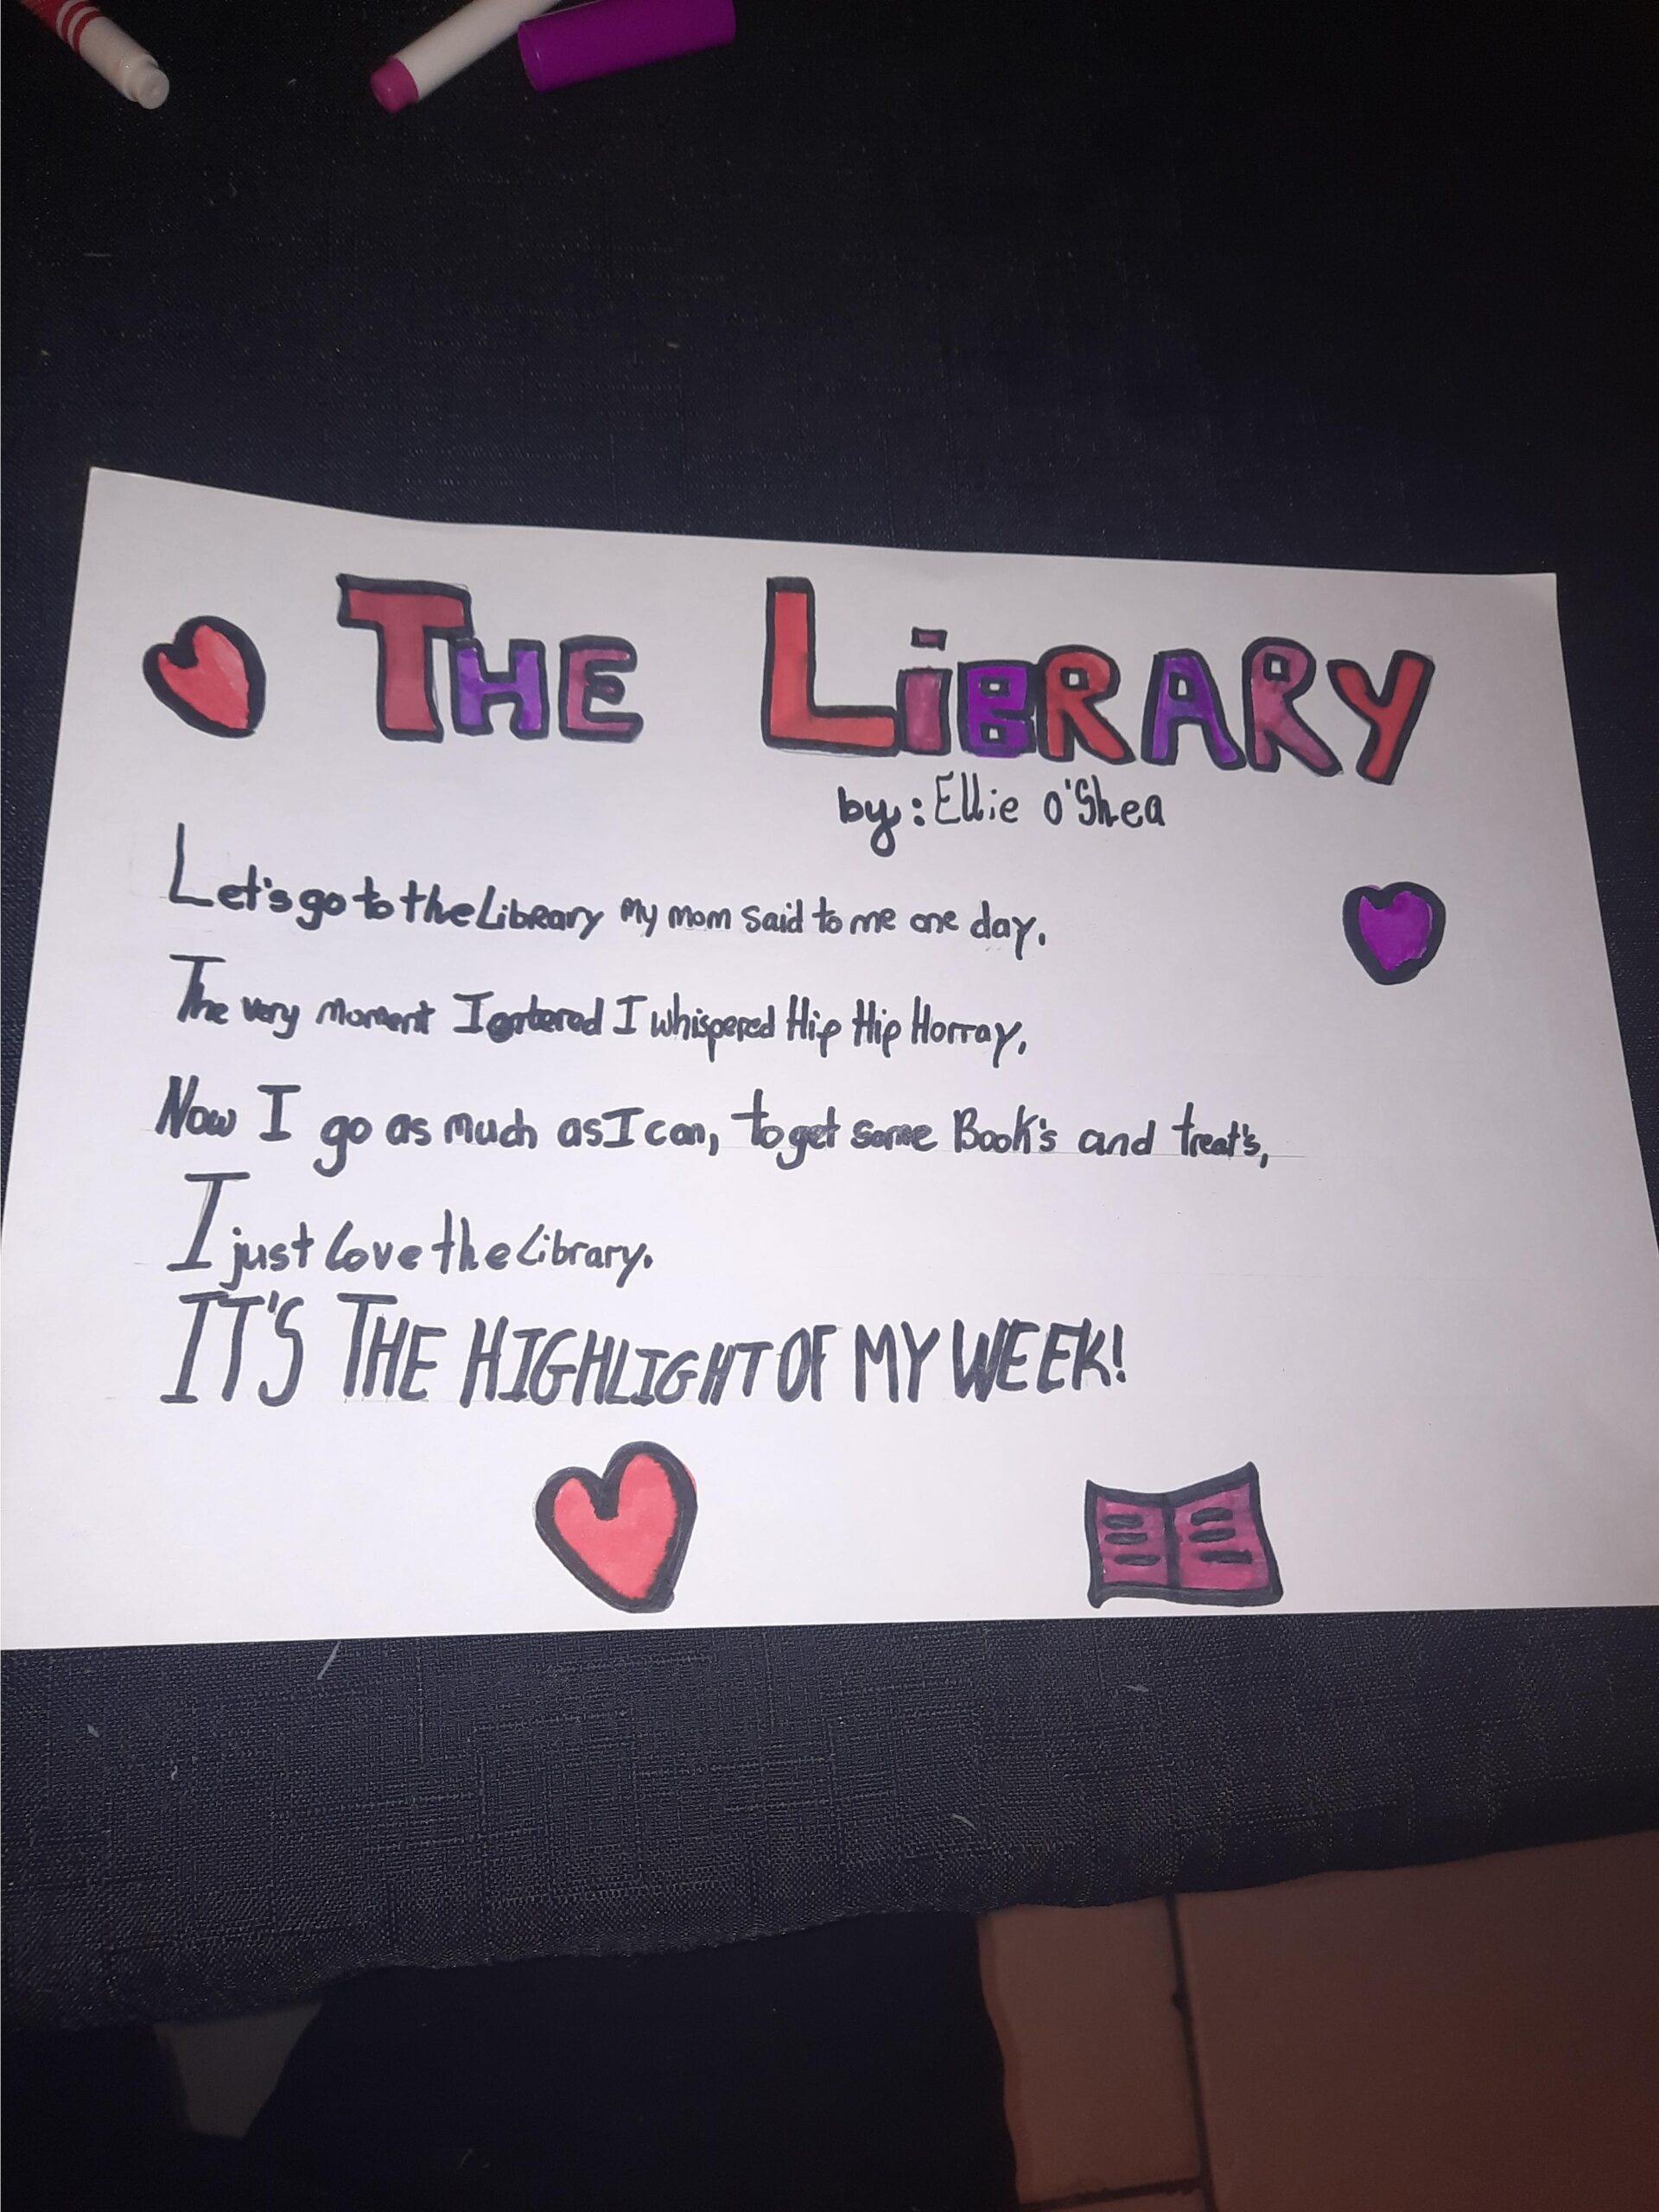 THE LiBRARY
by: Ellie O'Shea
Let's go to the Library my mom said to me one day.
The very moment I entered I whispered Hip Hip Horray,
Now I go as much as I can, to get some Book's and treat's,
I just love the Library.
IT'S THE HIGHLIGHT OF MY WEEK!